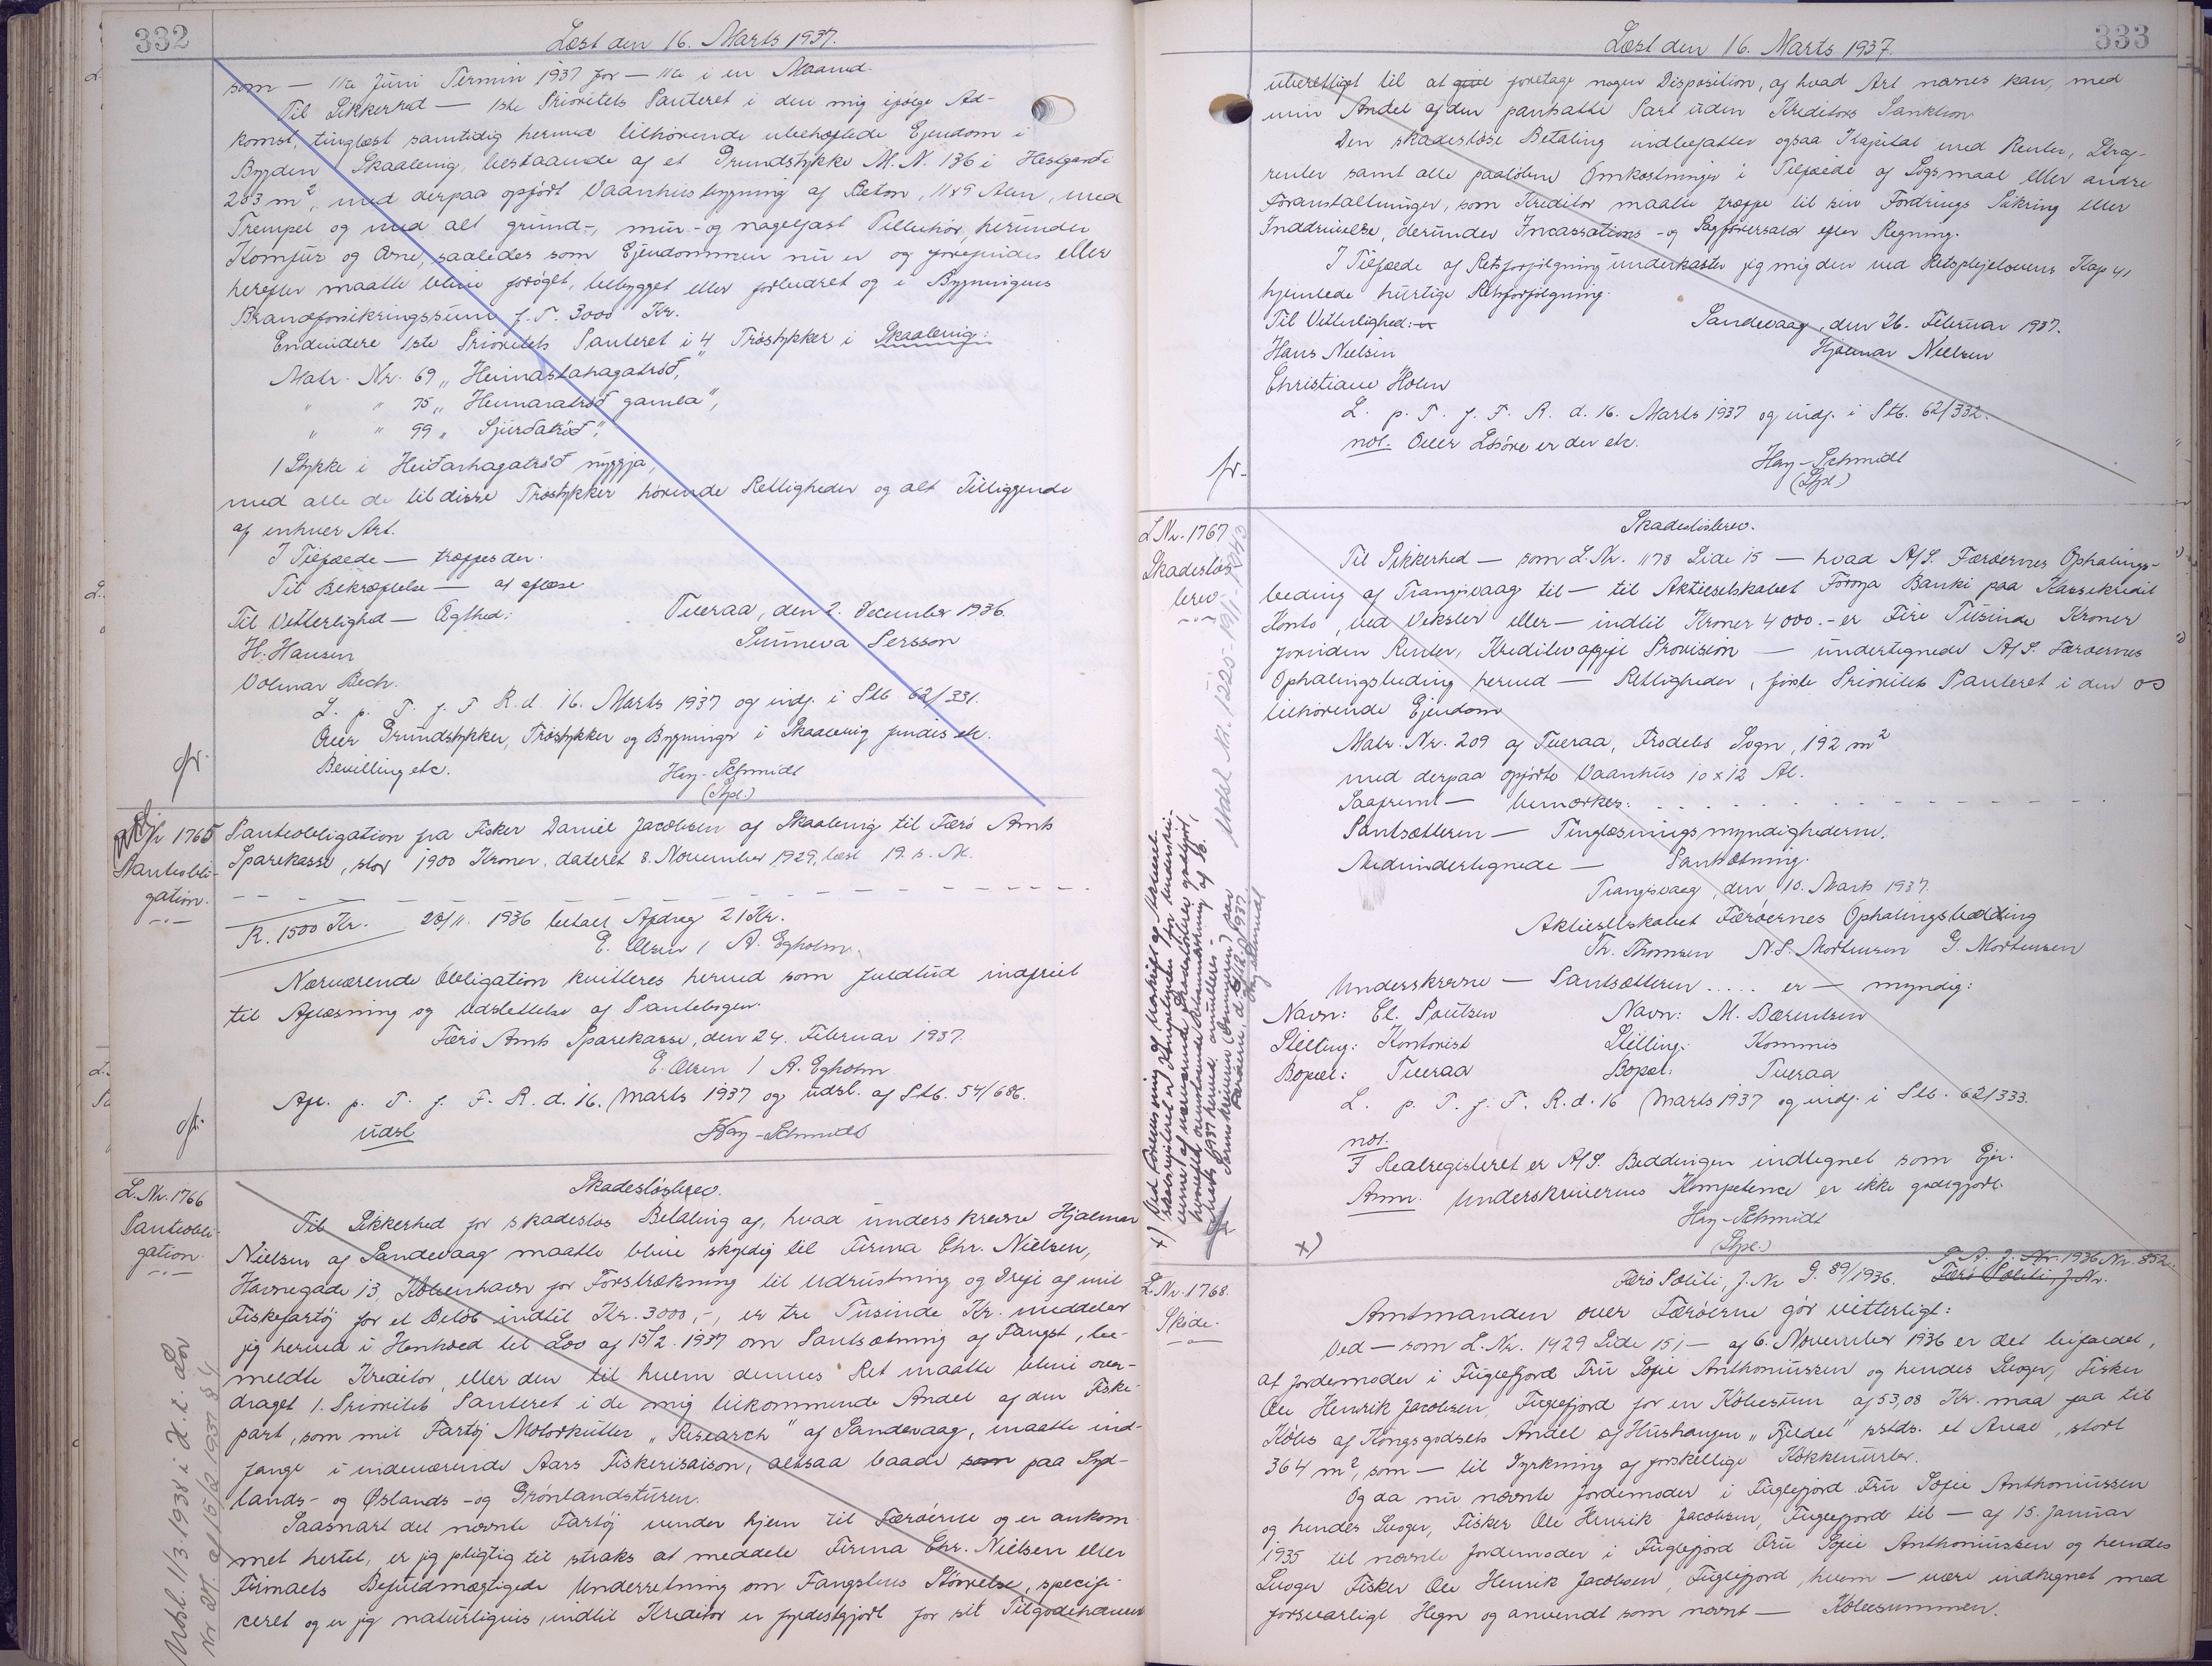 332
Læst den 16. Marts 1937.
som — 11te Juni Termin 1937 for — 11te i en Maaned.
Til Sikkerhed — 1ste Prioritets Panteret i den mig ifølge Ad-
komst, tinglæst samtidig hermed tilhørende ubehæftede Ejendom i
Bygden Skaalevig, bestaaende af et Grundstykke M. N. 136 i Hestgarði
203 m², med derpaa opført Vaanhusbygning af Beton, 11x9 Alen, med
Trempel og med alt grund-, mur- og nagelfast Tilbehør, herunder
Komfur og Ovne, saaledes som Ejendommen nu er og forefindes eller
herefter maatte blive forøget, bebygget eller forbedret og i Bygningens
Brandforsikringssum f. T. 3000 Kr.
Endvidere 1ste Prioritets Panteret i 4 Trøstykker i Skaalevig:
Matr. Nr. 69 „Heimastahagatrøð“,
" " 75 „Heimaratrøð gamla“,
" " 99 „Sjúrðatrøð“,
1 Stykke i Heiðarhagatrøð nýggja,
med alle de til disse Trøstykker hørende Rettigheder og alt Tilliggende
af enhver Art.
I Tilfælde — træffes der.
Til Bekræftelse — at aflæse
Til Vitterlighed — Ægthed:
Tveraa, den 2. December 1936.
H. Hansen
Sunneva Persson
Volmar Bech.
L. p. T. f. F. R. d. 16. Marts 1937 og indf. i Ptb. 62/331.
Over Grundstykker, Trøstykker og Bygninger i Skaalevig findes etc.
Bevilling etc.
Hey-Schmidt
(Stpl.)
fr.
Nr 1765
Panteobli-
gation.
Panteobligation fra Fisker Daniel Jacobsen af Skaalevig til Færø Amts
Sparekasse, stor 1900 Kroner, dateret 8. November 1929, læst 19. s. M.
R. 1500 Kr. 28/11. 1936 betalt Afdrag 21 Kr.
E. Olsen / A. Egholm.
Nærværende Obligation kvitteres herved som fuldtud indfriet
til Aflæsning og Udslettelse af Pantebogen.
Færø Amts Sparekasse, den 24. Februar 1937.
E. Olsen / A. Egholm
Afl. p. T. f. F. R. d. 16. Marts 1937 og udsl. af Ptb. 54/686.
udsl.
Hey-Schmidt
fr.
L. Nr. 1766
Panteobli-
gation.
Skadesløsbrev.
Til Sikkerhed for skadesløs Betaling af, hvad underskrevne Hjalmar
Nielsen af Sandevaag maatte blive skyldig til Firma Chr. Nielsen,
Havnegade 13, København for Forstrækning til Udrustning og Drift af mit
Fiskefartøj for et Beløb indtil Kr. 3000,-, er tre Tusinde Kr. meddeler
jeg herved i Henhold til Lov af 15/2. 1937 om Pantsætning af Fangst, be-
meldte Kreditor, eller den til hvem dennes Ret maatte blive over-
draget 1. Prioritets Panteret i de mig tilkommende Andel af den Fiske-
part, som mit Fartøj Motorkutter „Research“ af Sandevaag, maatte ind-
fange i indeværende Aars Fiskerisaison, altsaa baade som paa Syd-
lands- og Øslands- og Grønlandsturen.
Saasnart det nævnte Fartøj vender hjem til Færøerne og er ankom-
met hertil, er jeg pligtig til straks at meddele Firma Chr. Nielsen eller
Firmaets Befuldmægtigede Underretning om Fangstens Størrelse, specifi-
ceret og er jeg naturligvis, indtil Kreditor er fyldestgjort for sit Tilgodehavende
Udsl. 11/3. 1938 i H. t. Lov
Nr 27. af 15/2 1937 § 4
333
Læst den 16. Marts 1937.
uberettiget til at give foretage nogen Disposition, af hvad Art nævnes kan, med
min Andel af den pantsatte Part uden Kreditors Sanktion
Den skadesløse Betaling indbefatter ogsaa Kapital med Renter, Straf-
renter samt alle paaløbne Omkostninger i Tilfælde af Søgsmaal eller andre
Foranstaltninger, som Kreditor maatte træffe til sin Fordrings Sikring eller
Inddrivelse, derunder Incassations- og Sagførersalær efter Regning.
I Tilfælde af Retsforfølgning underkaster jeg mig den ved Retsplejelovens Kap 41
hjemlede hurtige Retsforfølgning.
Til Vitterlighed:
Sandevaag, den 26. Februar 1937.
Hans Nielsen
Hjalmar Nielsen
Christiane Holm
L. p. T. f. F. R. d. 16. Marts 1937 og indf. i Ptb. 62/332.
not. Over Løsøre er der etc.
Hey-Schmidt
(Stpl.)
fr.
L Nr. 1767
Skadesløs-
brev.
Skadesløsbrev.
Til Sikkerhed — som L. Nr. 1178 Side 15 — hvad A/S. Færøernes Ophalings-
beding af Trangisvaag til — til Aktieselskabet Føroya Banki paa Kassekredit
Konto, ved Veksler eller — indtil Kroner 4000.- er Fire Tusinde Kroner
foruden Renter, Kreditorafgift Provision — undertegnede A/S. Færøernes
Ophalingsbeding herved — Rettigheder, første Prioritets Panteret i den os
tilhørende Ejendom
Matr. Nr. 209 af Tveraa, Frodebø Sogn, 192 m²
med derpaa opførte Vaanhus 10 x 12 Al.
Saafremt — bemærkes: . . . . . . . . . . . .
Pantsætteren — Tinglæsningsmyndighederne.
Medundertegnede — Pantsætning.
Trangisvaag, den 10. Marts 1937.
Aktieselskabet Færøernes Ophalingsbedding
Th. Thomsen N. S. Mortensen G. Mortensen
Underskrevne — Pantsætteren ..... er — myndig:
Navn: El. Poulsen Navn: M. Bærentsen
Stilling: Kontorist Stilling: Kommis
Bopæl: Tveraa Bopæl: Tveraa
L. p. T. f. F. R. d. 16 Marts 1937 og indf. i Ptb. 62/333.
not.
I Realregisteret er A/S. Beddingen indtegnet som Ejer.
Anm. Underskrivernes Kompetence er ikke godtgjort.
Hey-Schmidt
(Stpl.)
x)
Udsl. Nr. 1225 - 19/11 - 1943
x) Ved Forevisning af Udskrift af Aktiesel-
skabsregisteret er Kompetencen for Underskri-
verne af nærværende Skadesløsbrev godtgjort,
hvorefter ovenstaaende Retsanmærkning af 16.
Marts 1937 herved annulleres.
Sorenskriveren (Dommeren) paa
Færøerne, d. 8/12 1937
Hey-Schmidt
L. Nr. 1768.
Skøde.
Færø Politi, J. Nr G. 89/1936. F. A. J. 1936 Nr. 852.
Færø Politi, J. Nr.
Amtmanden over Færøerne gør vitterligt:
Ved — som L. Nr. 1429 Side 151 — af 6. November 1936 er det bifaldet,
at Jordemoder i Fuglefjord Fru Sofie Anthoniussen og hendes Svoger, Fisker
Ole Henrik Jacobsen, Fuglefjord for en Købesum af 53,08 Kr. maa faa til
Købs af Kongsgodsets Andel af Hushaugen „Fjeldet“ sstds. et Areal, stort
364 m², som — til Dyrkning af forskellige Køkkenurter.
Og da nu nævnte Jordemoder i Fuglefjord Fru Sofie Anthoniussen
og hendes Svoger, Fisker Ole Henrik Jacobsen, Fuglefjord til — af 15. Januar
1935 til nævnte Jordemoder i Fuglefjord Fru Sofie Anthoniussen og hendes
Svoger Fisker Ole Henrik Jacobsen, Fuglefjord, hvem — være indhegnet med
forsvarligt Hegn og anvendt som nævnt — Købesummen.